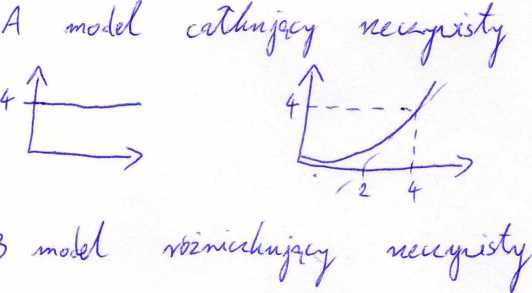 A model całkujący rzeczywisty
4
4
2 4
B model różniczkujący rzeczywisty